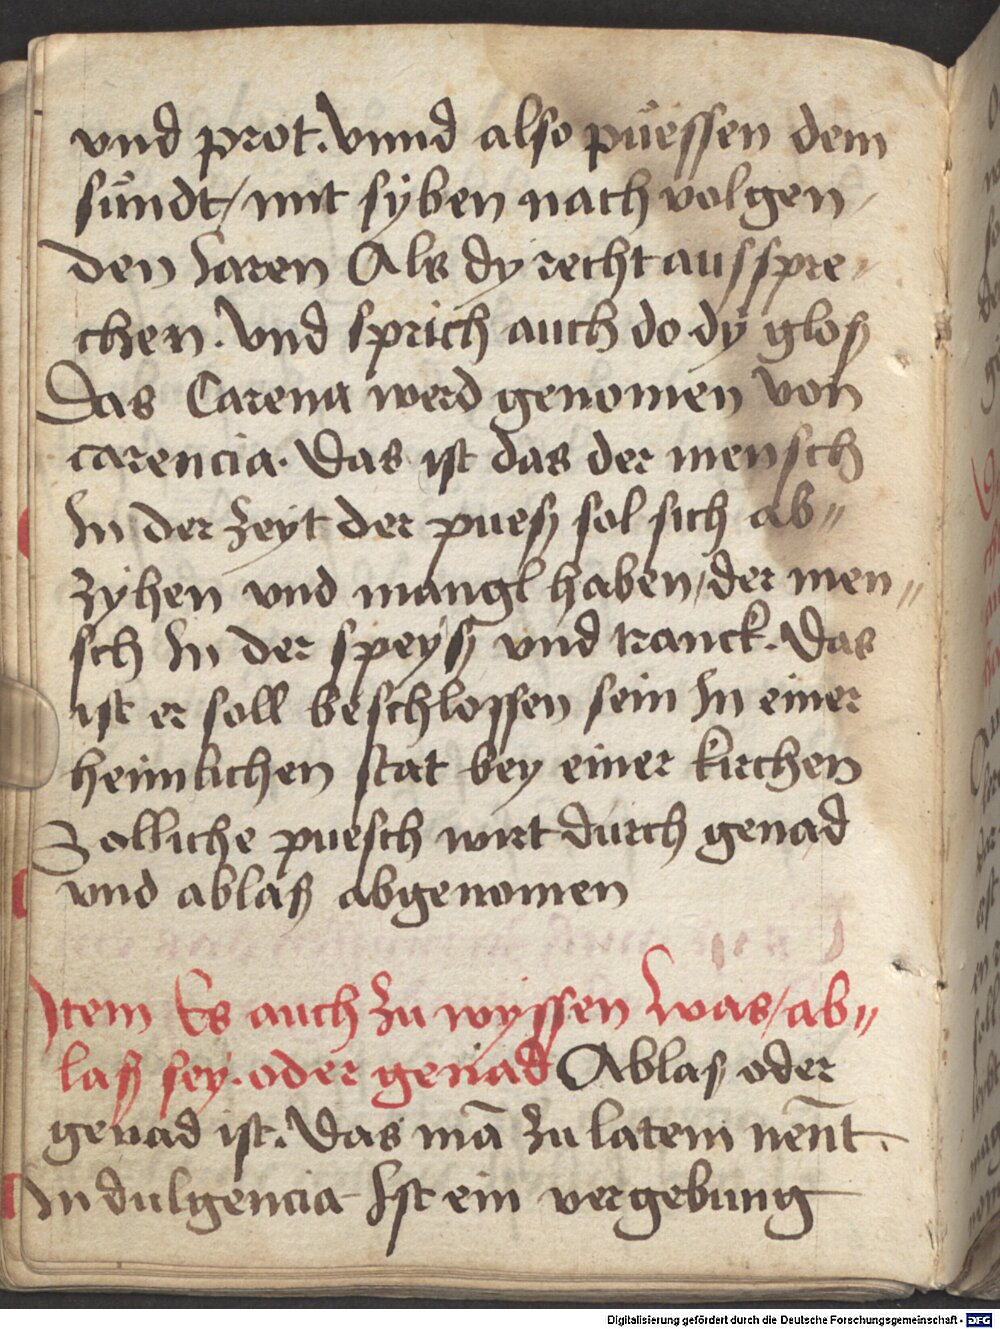 vnd prot. Vnnd also püessen dem
sündt/ mit syben nach volgen/
den Jaren Als dy recht ausspre/
chen. Vnd sprich auch do dy gloß
Das Carena werd genomen von
carencia. Das ist das der mensch
In der zeyt der pueß sol sich ab//
zyhen vnd mangl haben/ der men//
sch In der speyß vnd tranck. Das
ist er soll beschlossen sein In einer
heimlichen stat bey einer kirchen
Solliche puesch wirt durch genad
vnd ablaß abgenomen
Item Es auch zu wyssen was/ ab//
laß sey. oder genad Ablaß oder
genad ist. Das mā zu latein nēnt.
Indulgencia Ist ein vergebung
Digitalisierung gefördert durch die Deutsche Forschungsgemeinschaft - DFG